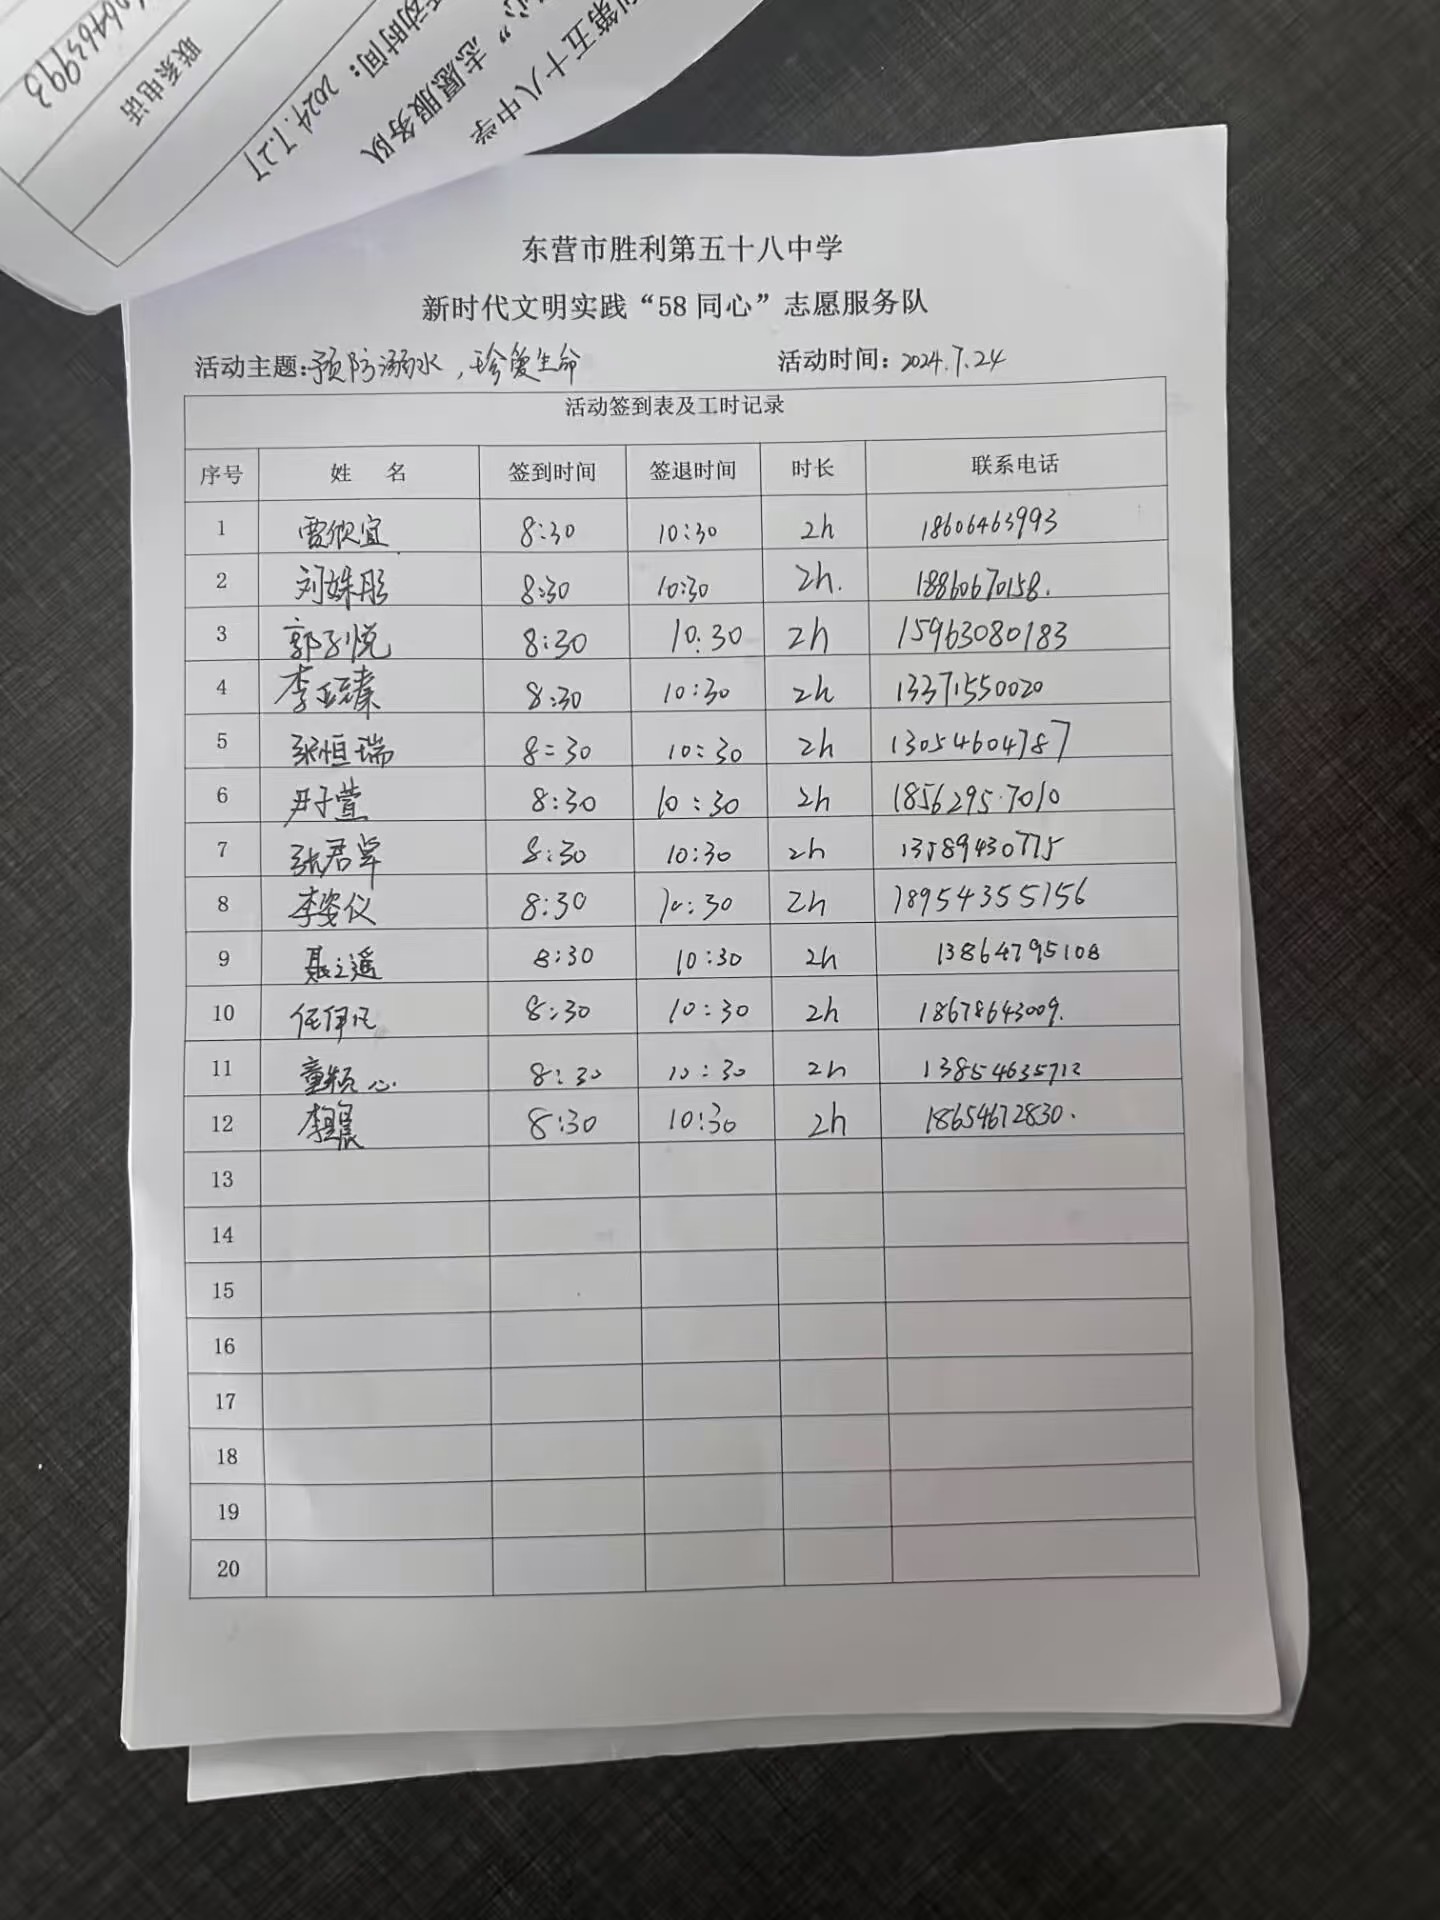 联系电话
活动时间：2024.7.27
心”志愿服务队
第五十八中学
东营市胜利第五十八中学
新时代文明实践“58 同心”志愿服务队
活动主题：预防溺水，珍爱生命 活动时间：2024.7.24
活动签到表及工时记录
序号 姓 名 签到时间 签退时间 时长 联系电话
1 贾欣宜 8:30 10:30 2h 18606463993
2 刘姝彤 8:30 10:30 2h. 18860670158.
3 郭子悦 8:30 10.30 2h 15963080183
4 8:30 10:30 2h 13371550020
5 张恒瑞 8:30 10:30 2h 13054604787
6 尹子萱 8:30 10:30 2h 1856295·7010
7 张君 8:30 10:30 2h 13589430775
8 李姿仪 8:30 10:30 2h 18954355156
9 聂之遥 8:30 10:30 2h 13864795108
10 任伊凡 8:30 10:30 2h 18678643009.
11 童颖心 8:30 10:30 2h 13854635712
12 8:30 10:30 2h 18654672830.
13
14
15
16
17
18
19
20